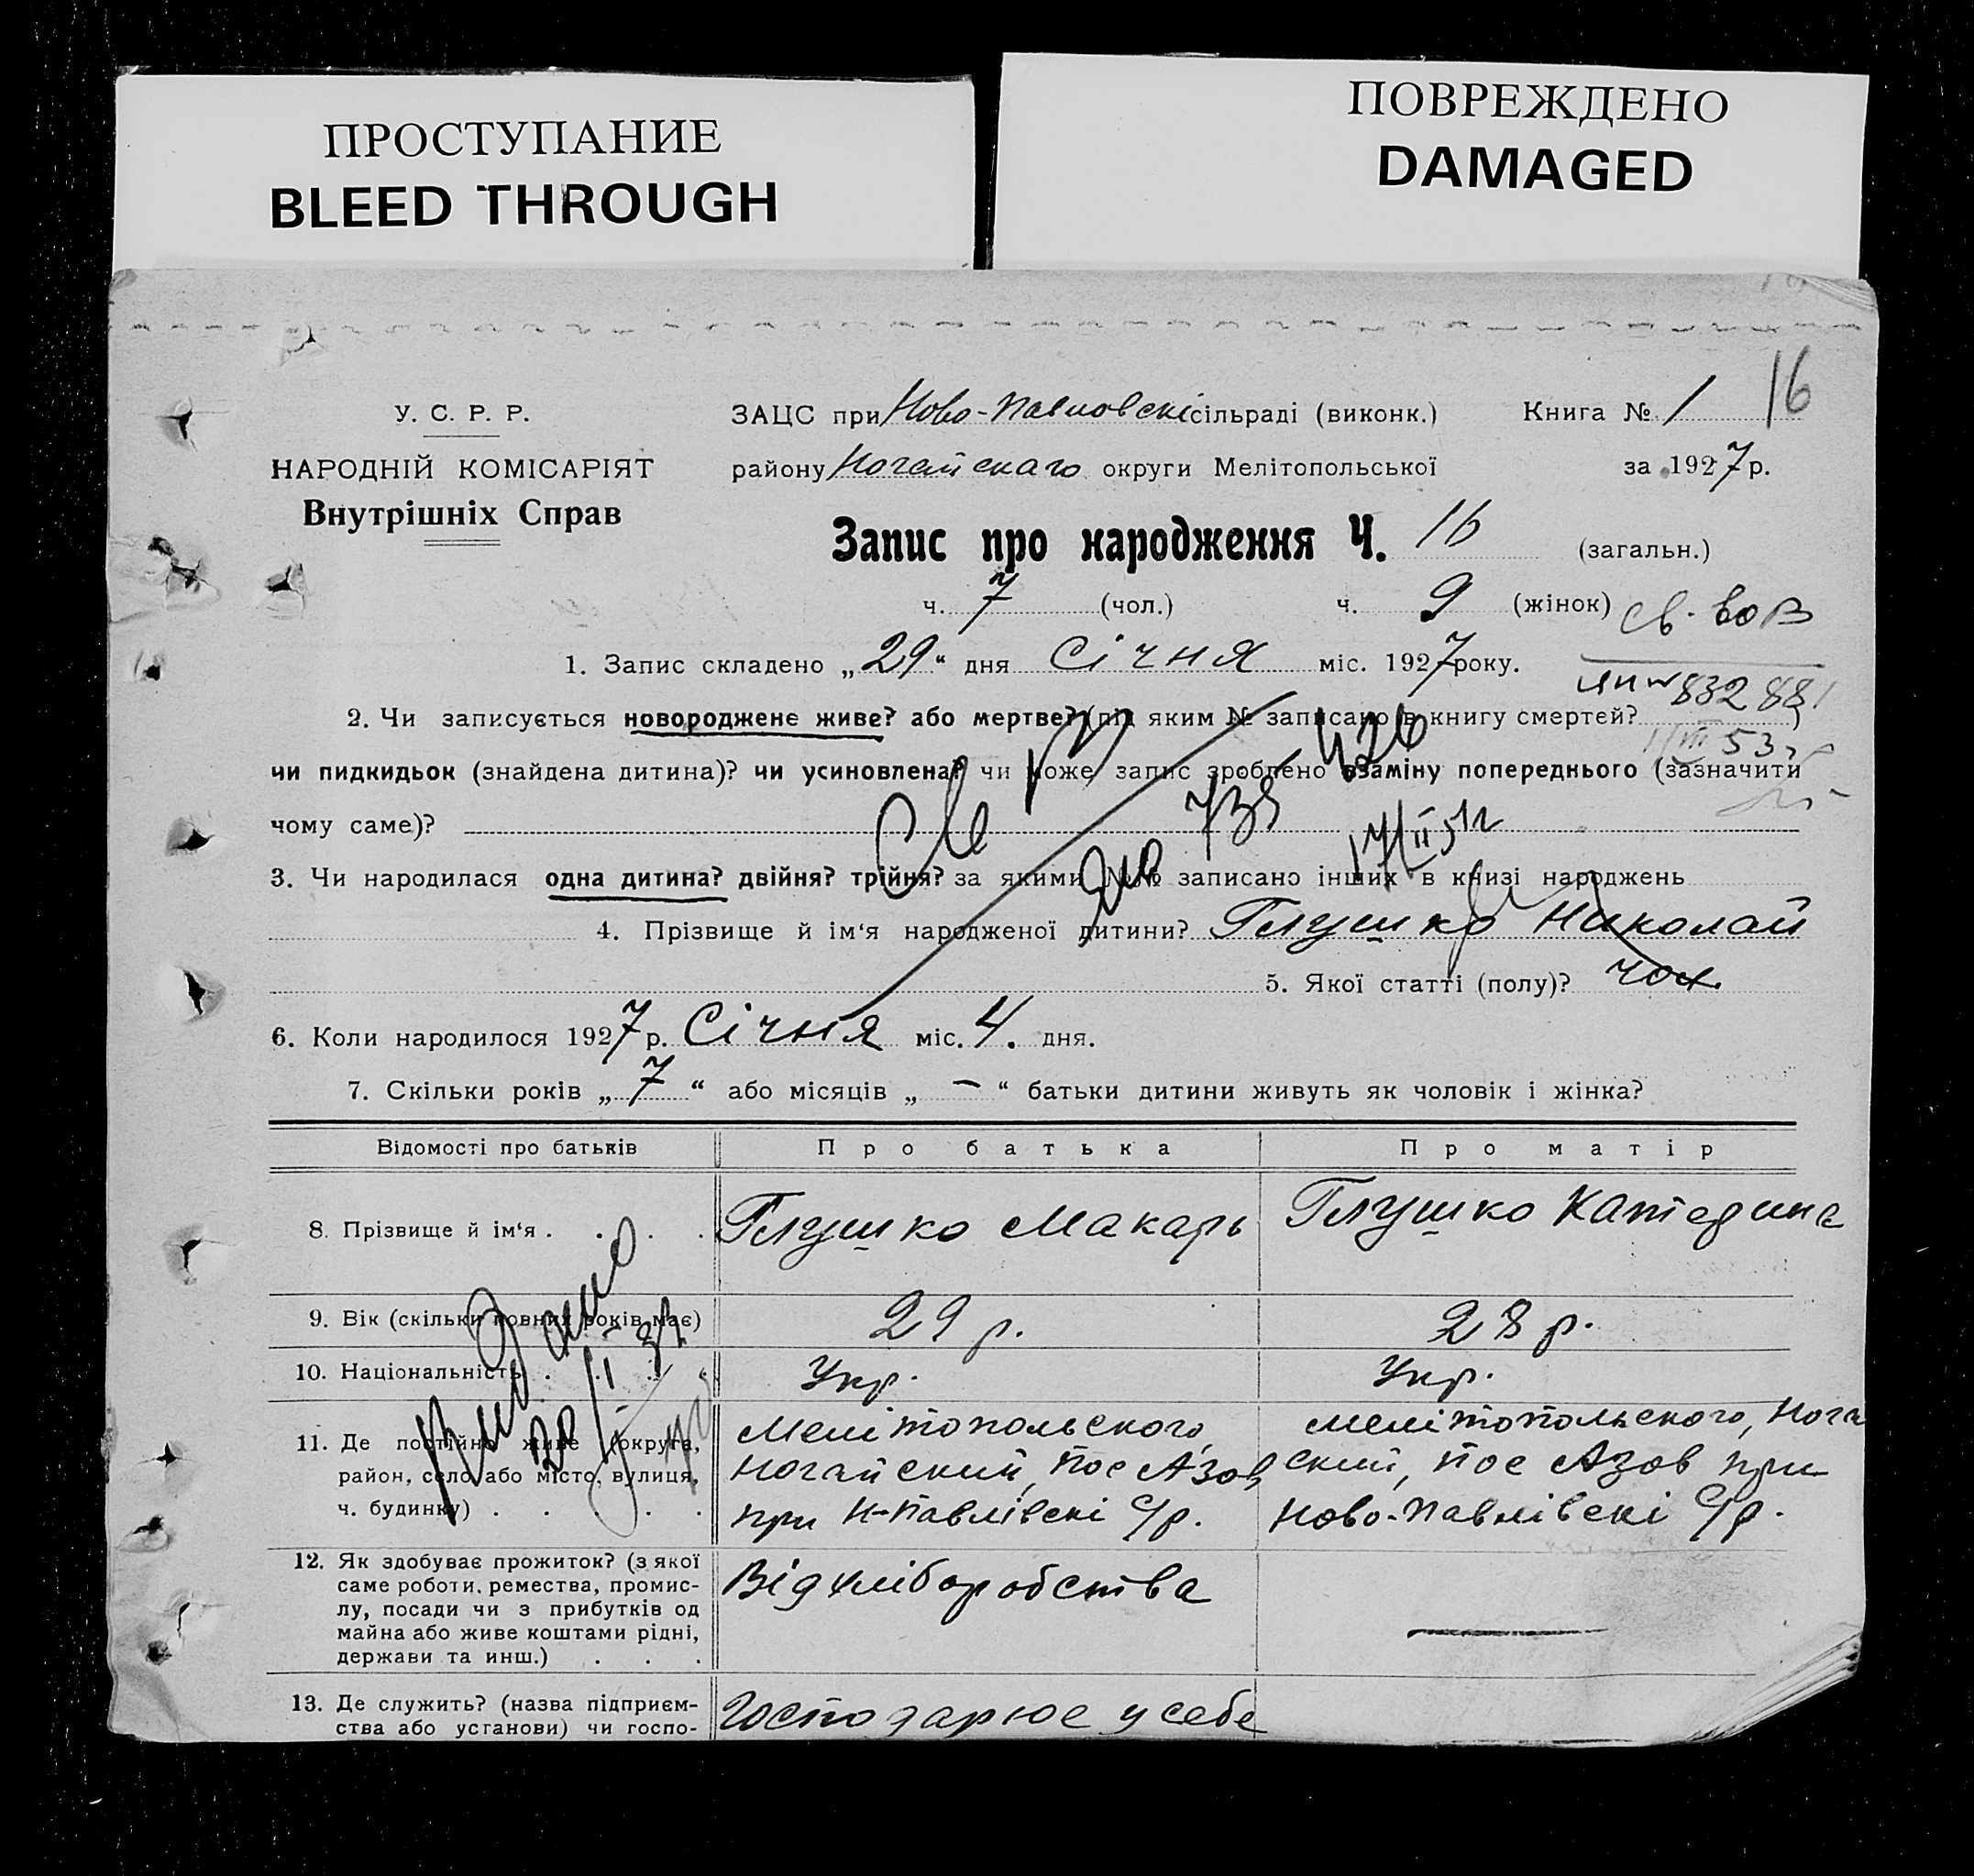 ПРОСТУПАНИЕ
BLEED THROUGH
ПОВРЕЖДЕНО
DAMAGED
16
У. С. Р. Р.
НАРОДНІЙ КОМІСАРІЯТ
Внутрішніх Справ
ЗАЦС при Ново-Павловскі сільраді (виконк.) Книга № 1
району Ногайскаго округи Мелітопольської за 1927 р.
Запис про народження Ч. 16 (загальн.)
ч. 7 (чол.) ч. 9 (жінок)
1. Запис складено „29“ дня Січня міс. 1927 року.
2. Чи записується новороджене живе? або мертве? (під яким № записано в книгу смертей?)
чи пидкидьок (знайдена дитина)? чи усиновлена? чи може запис зроблено взаміну попереднього (зазначити
чому саме)?
3. Чи народилася одна дитина? двійня? трійня? за якими №№ записано інших в книзі народжень
4. Прізвище й ім‘я народженої дитини? Глушко Николай
5. Якої статті (полу)? чол.
6. Коли народилося 1927 р. Січня міс. 4. дня.
7. Скільки років „7“ або місяців „–“ батьки дитини живуть як чоловік і жінка?
Відомості про батьків Про батька Про матір
8. Прізвище й ім‘я . . . . Глушко Макарь Глушко Катерина
9. Вік (скільки повних років має) 29 р. 28 р.
10. Національність . . . . Укр. Укр.
11. Де постійно живе (округа,
район, село або місто, вулиця,
ч. будинку) . . . . .
Мелітопольского,
Ногайский, пос Азов,
при Н-Павлівскі с/р.
Мелітопольского, Нога
ский, пос Азов при
Ново-Павлівскі с/р.
12. Як здобуває прожиток? (з якої
саме роботи, ремества, промис-
лу, посади чи з прибутків од
майна або живе коштами рідні,
держави та инш.) . . .
Від хліборобства
—
13. Де служить? (назва підприєм-
ства або установи) чи госпо-
Господарює у себе
Видано